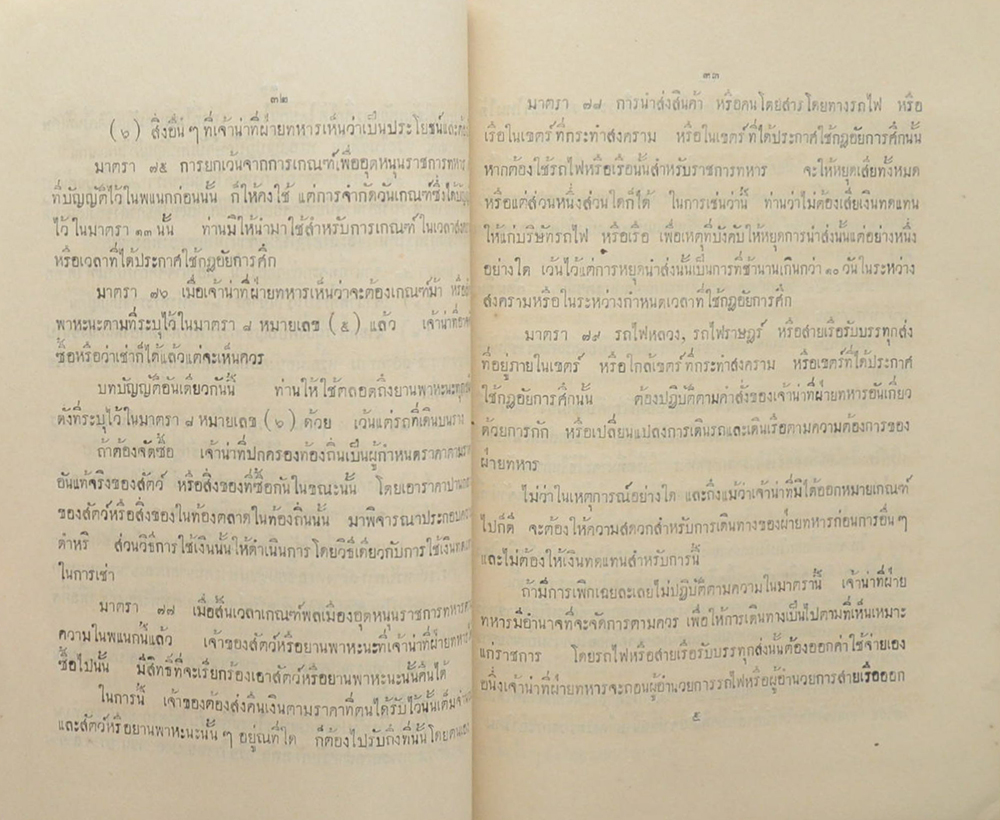 ๓๒
(๖) สิ่งอื่น ๆ ที่เจ้าน่าที่ฝ่ายทหารเห็นว่าเป็นประโยชน์และ
มาตรา ๗๕ การยกเว้นจากการเกณฑ์เพื่ออุดหนุนราชการทหาร
ที่บัญญัติไว้ในพแนกก่อนนั้น ก็ให้คงใช้ แต่การจำกัดวันเกณฑ์ซึ่งได้
ไว้ในมาตรา ๑๓ นั้น ท่านมิให้นำมาใช้สำหรับการเกณฑ์ในเวลา
หรือเวลาที่ได้ประกาศใช้กฎอัยการศึก
มาตรา ๗๖ เมื่อเจ้าน่าที่ฝ่ายทหารเห็นว่าจะต้องเกณฑ์ม้า
พาหะนะตามที่ระบุไว้ในมาตรา ๘ หมายเลข (๕) แล้ว
ซื้อหรือว่าเช่าก็ได้แล้วแต่จะเห็นควร
บทบัญญัติอันเดียวกันนี้ ท่านให้ใช้ตลอดถึงยานพาหะนะ
ดังที่ระบุไว้ในมาตรา ๘ หมายเลข (๖) ด้วย เว้นแต่รถที่เดินบนราง
ถ้าต้องจัดซื้อ เจ้าน่าที่ปกครองท้องถิ่นเป็นผู้กำหนดราคาตาม
อันแท้จริงของสัตว์ หรือสิ่งของที่ซื้อกันในขณะนั้น โดยเอาราคา
ของสัตว์หรือสิ่งของในท้องตลาดในท้องถิ่นนั้น มาพิจารณาประกอบ
ดำหริ ส่วนวิธีการใช้เงินนั้นให้ดำเนินการโดยวิธีเดียวกับการใช้เงิน
ในการเช่า
มาตรา ๗๗ เมื่อสิ้นเวลาเกณฑ์พลเมืองอุดหนุนราชการทหาร
ความในพแนกนี้แล้ว เจ้าของสัตว์หรือยานพาหะนะที่เจ้าน่าที่ฝ่ายทหาร
ซื้อไปนั้น มีสิทธิ์ที่จะเรียกร้องเอาสัตว์หรือยานพาหะนะนั้นคืนได้
ในการนี้ เจ้าของต้องส่งคืนเงินตามราคาที่ตนได้รับไว้นั้นเต็ม
และสัตว์หรือยานพาหะนะนั้น ๆ อยู่ณที่ใด ก็ต้องไปรับถึงที่นั้นโดย
๓๓
มาตรา ๗๘ การนำส่งสินค้า หรือคนโดยสารโดยทางรถไฟ หรือ
เรือในเขตร์ที่กระทำสงคราม หรือในเขตร์ที่ได้ประกาศใช้กฎอัยการศึกนั้น
หากต้องใช้รถไฟหรือเรือนั้นสำหรับราชการทหาร จะให้หยุดเสียทั้งหมด
หรือแต่ส่วนหนึ่งส่วนใดก็ได้ ในการเช่นว่านี้ ท่านว่าไม่ต้องเสียเงินทดแทน
ให้แก่บริษัทรถไฟ หรือเรือ เพื่อเหตุที่บังคับให้หยุดการนำส่งนั้นแต่อย่างหนึ่ง
อย่างใด เว้นไว้แต่การหยุดนำส่งนั้นเป็นการที่ช้านานเกินกว่า ๑๐ วันในระหว่าง
สงครามหรือในระหว่างกำหนดเวลาที่ใช้กฎอัยการศึก
มาตรา ๗๙ รถไฟหลวง, รถไฟราษฎร์ หรือสายเรือรับบรรทุกส่ง
ที่อยู่ภายในเขตร์ หรือใกล้เขตร์ที่กระทำสงคราม หรือเขตร์ที่ได้ประกาศ
ใช้กฎอัยการศึกนั้น ต้องปฏิบัติตามคำสั่งของเจ้าน่าที่ฝ่ายทหารอันเกี่ยว
ด้วยการกัก หรือเปลี่ยนแปลงการเดินรถและเดินเรือตามความต้องการของ
ฝ่ายทหาร
ไม่ว่าในเหตุการณ์อย่างใด และถึงแม้ว่าเจ้าน่าที่มิได้ออกหมายเกณฑ์
ไปก็ดี จะต้องให้ความสดวกสำหรับการเดินทางของฝ่ายทหารก่อนการอื่น ๆ
และไม่ต้องให้เงินทดแทนสำหรับการนี้
ถ้ามีการเพิกเฉยละเลยไม่ปฏิบัติตามความในมาตรานี้ เจ้าน่าที่ฝ่าย
ทหารมีอำนาจที่จะจัดการตามควร เพื่อให้การเดินทางเป็นไปตามที่เห็นเหมาะ
แก่ราชการ โดยรถไฟหรือสายเรือรับบรรทุกส่งนั้นต้องออกค่าใช้จ่ายเอง
อนึ่งเจ้าน่าที่ฝ่ายทหารจะถอนผู้อำนวยการรถไฟหรือผู้อำนวยการสายเรือออก
๕